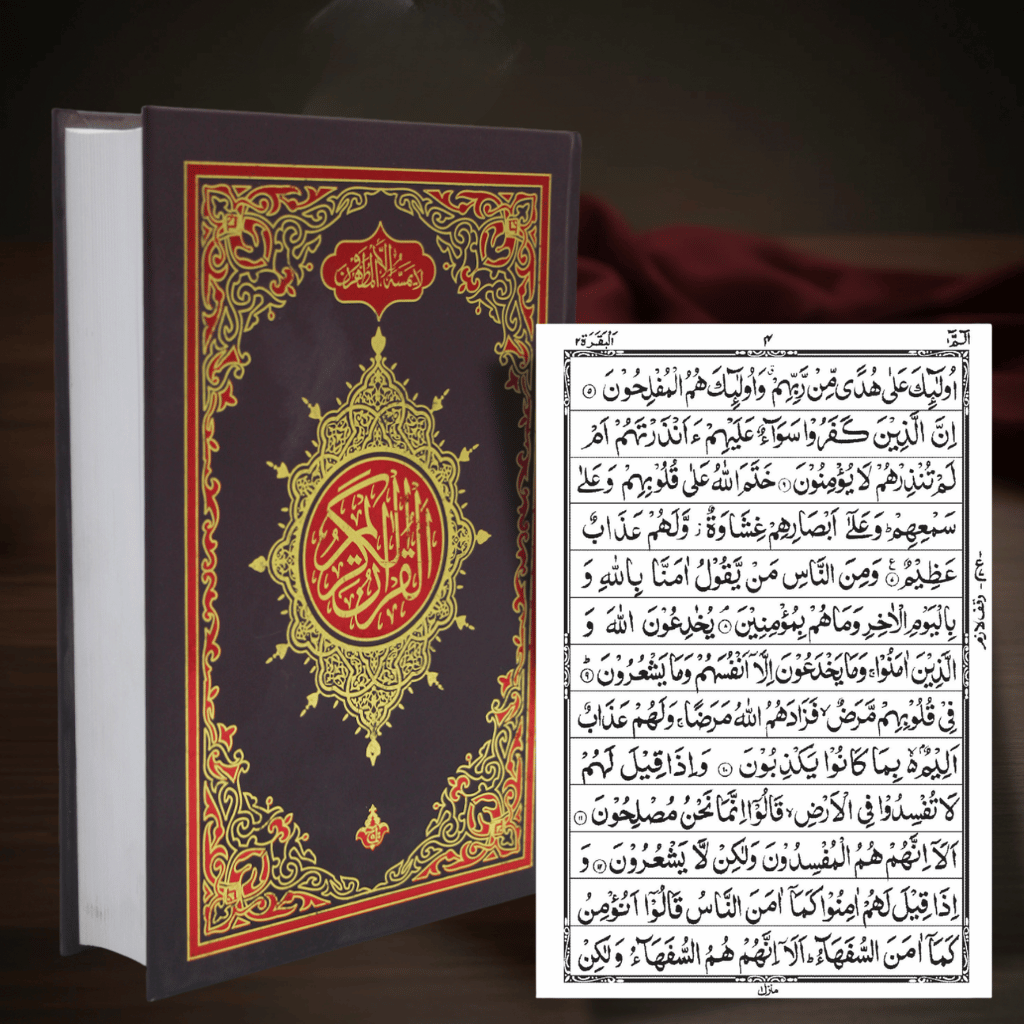 لا يمسه الا المطهرون
القرآن الكريم
الٓمّٓ ١
٤
اَلْبَقَرَة ٢
اُولٰٓئِكَ عَلٰى هُدًى مِّنْ رَّبِّهِمْ ۙ وَاُولٰٓئِكَ هُمُ الْمُفْلِحُوْنَ ٥
اِنَّ الَّذِيْنَ كَفَرُوْا سَوَآءٌ عَلَيْهِمْ ءَاَنْذَرْتَهُمْ اَمْ
لَمْ تُنْذِرْهُمْ لَا يُؤْمِنُوْنَ ٦ خَتَمَ اللّٰهُ عَلٰى قُلُوْبِهِمْ وَعَلٰى
سَمْعِهِمْ ؕ وَعَلٰٓى اَبْصَارِهِمْ غِشَاوَةٌ ز وَّلَهُمْ عَذَابٌ
عَظِيْمٌ ٧ ع وَمِنَ النَّاسِ مَنْ يَّقُوْلُ اٰمَنَّا بِاللّٰهِ وَ
بِالْيَوْمِ الْاٰخِرِ وَمَا هُمْ بِمُؤْمِنِيْنَ ۘ ٨ يُخٰدِعُوْنَ اللّٰهَ وَ
الَّذِيْنَ اٰمَنُوْا ۚ وَمَا يَخْدَعُوْنَ اِلَّآ اَنْفُسَهُمْ وَمَا يَشْعُرُوْنَ ؕ ٩
فِيْ قُلُوْبِهِمْ مَّرَضٌ ۙ فَزَادَهُمُ اللّٰهُ مَرَضًا ۚ وَلَهُمْ عَذَابٌ
اَلِيْمٌۢ ۙ۬ بِمَا كَانُوْا يَكْذِبُوْنَ ١٠ وَاِذَا قِيْلَ لَهُمْ
لَا تُفْسِدُوْا فِي الْاَرْضِ ۙ قَالُوْٓا اِنَّمَا نَحْنُ مُصْلِحُوْنَ ١١
اَلَآ اِنَّهُمْ هُمُ الْمُفْسِدُوْنَ وَلٰكِنْ لَّا يَشْعُرُوْنَ ١٢ وَ
اِذَا قِيْلَ لَهُمْ اٰمِنُوْا كَمَآ اٰمَنَ النَّاسُ قَالُوْٓا اَنُؤْمِنُ
كَمَآ اٰمَنَ السُّفَهَآءُ ؕ اَلَآ اِنَّهُمْ هُمُ السُّفَهَآءُ وَلٰكِنْ
وقف لازم
منزل ١